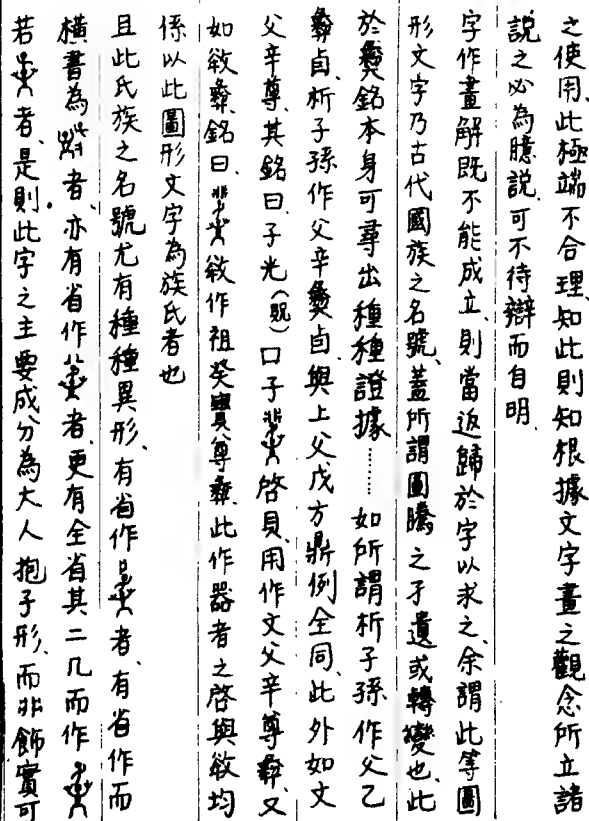 之使用、此極端不合理、知此則知根據文字畫之觀念所立諸
說之必為臆說、可不待辯而自明、
字作畫解既不能成立、則當返歸於字以求之、余謂此等圖
形文字乃古代國族之名號、蓋所謂圖騰之孑遺或轉變也、此
於彝銘本身可尋出種種證據……如所謂析子孫作父乙
彝卣、析子孫作父辛彝卣、與上父戊方鼎例全同、此外如文
父辛尊、其銘曰、子光(貺)口子啓貝、用作文父辛尊彝、又
如𢼸彝銘曰、𢼸作祖癸寶尊彝、此作器者之啓與𢼸均
係以此圖形文字為族氏者也
且此氏族之名號尤有種種異形、有省作者、有省作而
橫書為者、亦有省作者、更有全省其二几而作
若者、是則此字之主要成分為大人抱子形、而非飾實可